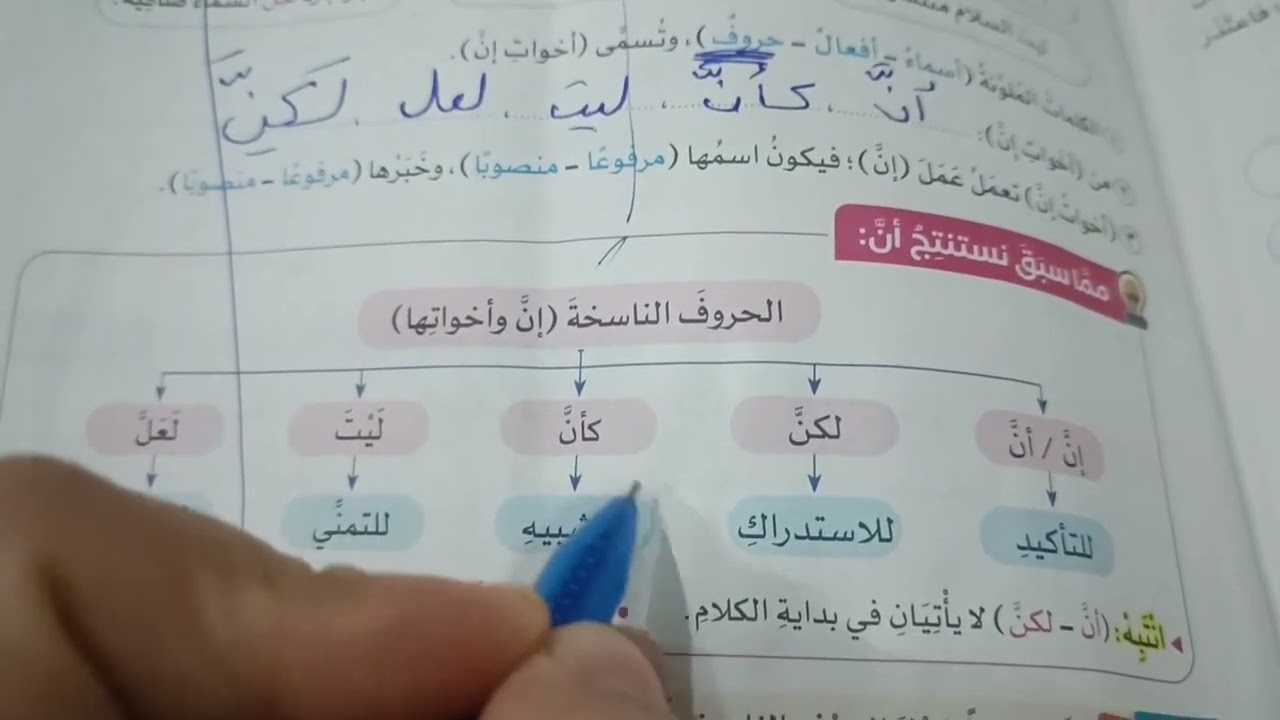 الكلمات الملونة (أسماءٌ - أفعالٌ - حروفٌ)، وتُسمَّى (أخواتِ إنَّ).
٢ من (أخواتِ إنَّ):
أنَّ، كأنَّ، ليتَ، لعل، لكنَّ
٣ (أخواتُ إنَّ) تعمَلُ عَمَلَ (إنَّ)؛ فيكونُ اسمُها (مرفوعًا - منصوبًا)، وخَبَرُها (مرفوعًا - منصوبًا).
ممَّا سبَقَ نستنتِجُ أنَّ:
الحروفَ الناسخةَ (إنَّ وأخواتِها)
إنَّ / أنَّ لكنَّ كأنَّ لَيْتَ لَعَلَّ
للتأكيدِ للاستدراكِ للتمنِّي
انْتَبِهْ: (أنَّ - لكنَّ) لا يأْتِيَانِ في بدايةِ الكلامِ.